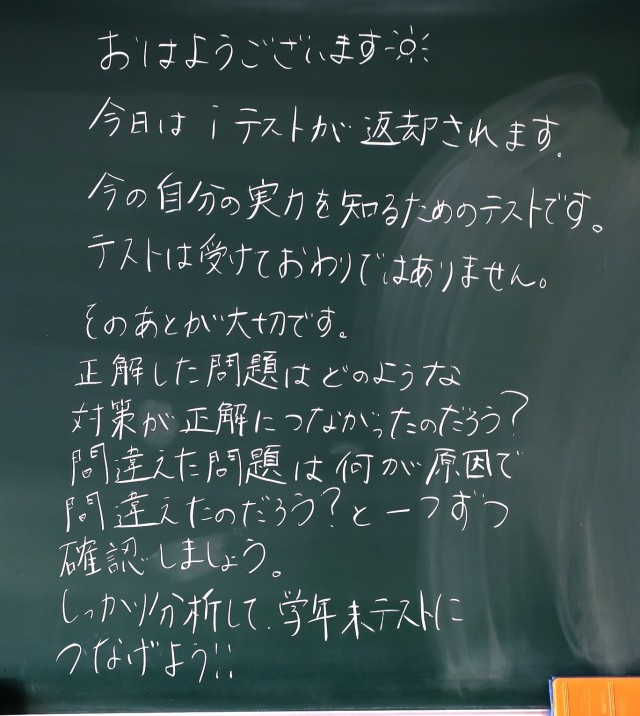 おはようございます☀
今日は iテストが返却されます。
今の自分の実力を知るためのテストです。
テストは受けておわりではありません。
そのあとが大切です。
正解した問題はどのような
対策が正解につながったのだろう?
間違えた問題は何が原因で
間違えたのだろう?と一つずつ
確認しましょう。
しっかり分析して、学年末テストに
つなげよう!!